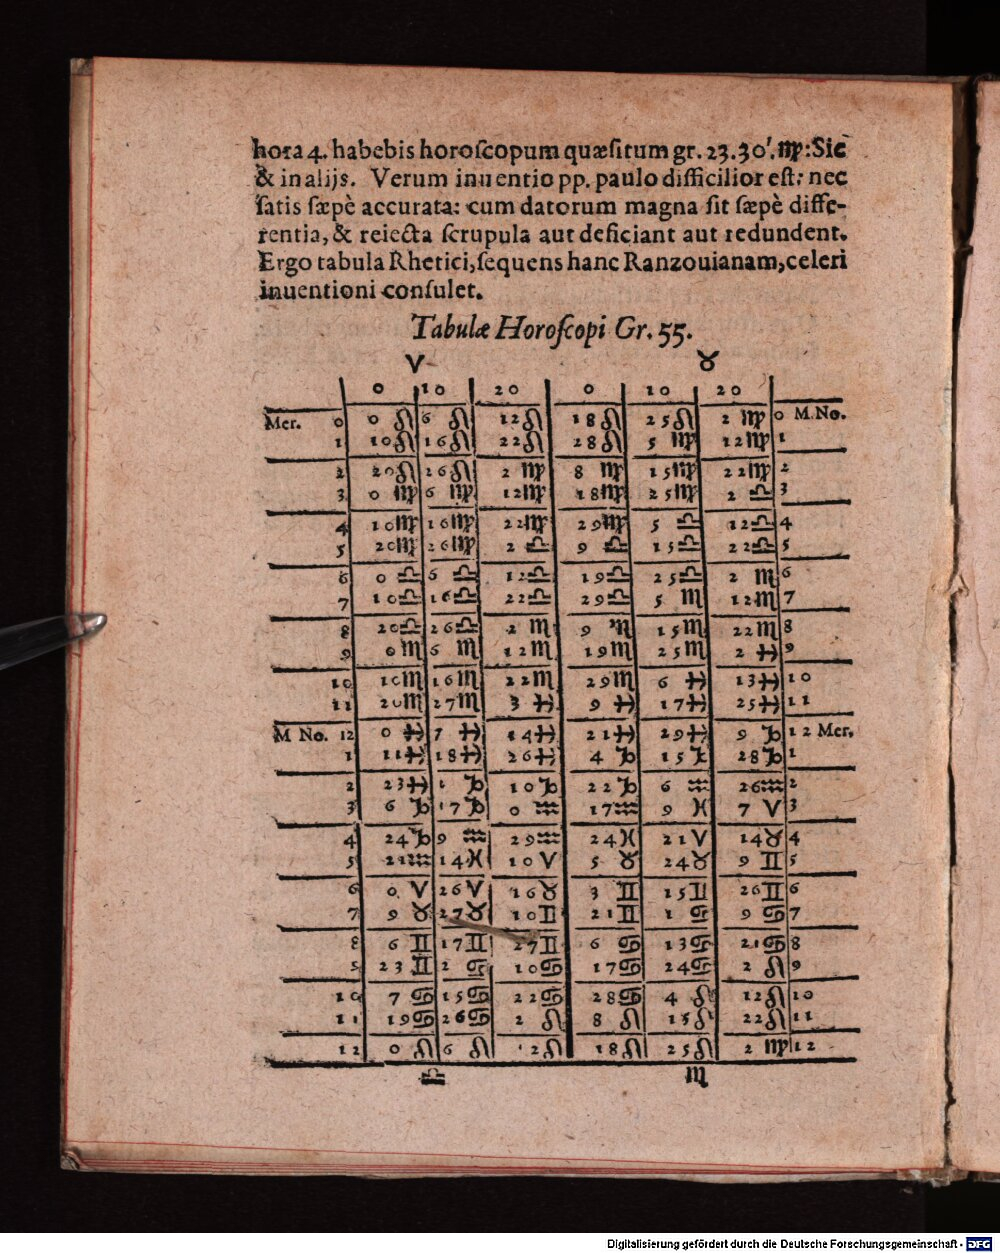 hora 4. habebis horoſcopum quæſitum gr. 23.30'. ♍: Sic
& in alijs. Verum inuentio pp. paulo difficilior eſt: nec
ſatis ſæpè accurata: cum datorum magna ſit ſæpè diffe-
rentia, & reiecta ſcrupula aut deficiant aut redundent.
Ergo tabula Rhetici, ſequens hanc Ranzouianam, celeri
inuentioni conſulet.
Tabulæ Horoſcopi Gr. 55.
♈ ♉
0 10 20 0 10 20
Mer. 0 0 ♌ 6 ♌ 12 ♌ 18 ♌ 25 ♌ 2 ♍ 0 M.No.
1 10 ♌ 16 ♌ 22 ♌ 28 ♌ 5 ♍ 12 ♍ 1
2 20 ♌ 26 ♌ 2 ♍ 8 ♍ 15 ♍ 22 ♍ 2
3 0 ♍ 6 ♍ 12 ♍ 18 ♍ 25 ♍ 2 ♎ 3
4 10 ♍ 16 ♍ 22 ♍ 29 ♍ 5 ♎ 12 ♎ 4
5 20 ♍ 26 ♍ 2 ♎ 9 ♎ 15 ♎ 22 ♎ 5
6 0 ♎ 6 ♎ 12 ♎ 19 ♎ 25 ♎ 2 ♏ 6
7 10 ♎ 16 ♎ 22 ♎ 29 ♎ 5 ♏ 12 ♏ 7
8 20 ♎ 26 ♎ 2 ♏ 9 ♏ 15 ♏ 22 ♏ 8
9 0 ♏ 6 ♏ 12 ♏ 19 ♏ 25 ♏ 2 ♐ 9
10 10 ♏ 16 ♏ 22 ♏ 29 ♏ 6 ♐ 13 ♐ 10
11 20 ♏ 27 ♏ 3 ♐ 9 ♐ 17 ♐ 25 ♐ 11
M No. 12 0 ♐ 7 ♐ 14 ♐ 21 ♐ 29 ♐ 9 ♑ 12 Mer.
1 11 ♐ 18 ♐ 26 ♐ 4 ♑ 15 ♑ 28 ♑ 1
2 23 ♐ 1 ♑ 10 ♑ 22 ♑ 6 ♒ 26 ♒ 2
3 6 ♑ 17 ♑ 0 ♒ 17 ♒ 9 ♓ 7 ♈ 3
4 24 ♑ 9 ♒ 29 ♒ 24 ♓ 21 ♈ 14 ♉ 4
5 21 ♒ 14 ♓ 10 ♈ 5 ♉ 24 ♉ 9 ♊ 5
6 0 ♈ 26 ♈ 16 ♉ 3 ♊ 15 ♊ 26 ♊ 6
7 9 ♉ 27 ♉ 10 ♊ 21 ♊ 1 ♋ 9 ♋ 7
8 6 ♊ 17 ♊ 27 ♊ 6 ♋ 13 ♋ 21 ♋ 8
5 23 ♊ 2 ♋ 10 ♋ 17 ♋ 24 ♋ 2 ♌ 9
10 7 ♋ 15 ♋ 22 ♋ 28 ♋ 4 ♌ 12 ♌ 10
11 19 ♋ 26 ♋ 2 ♌ 8 ♌ 15 ♌ 22 ♌ 11
12 0 ♌ 6 ♌ 12 ♌ 18 ♌ 25 ♌ 2 ♍ 12
♎ ♏
Digitalisierung gefördert durch die Deutsche Forschungsgemeinschaft - DFG